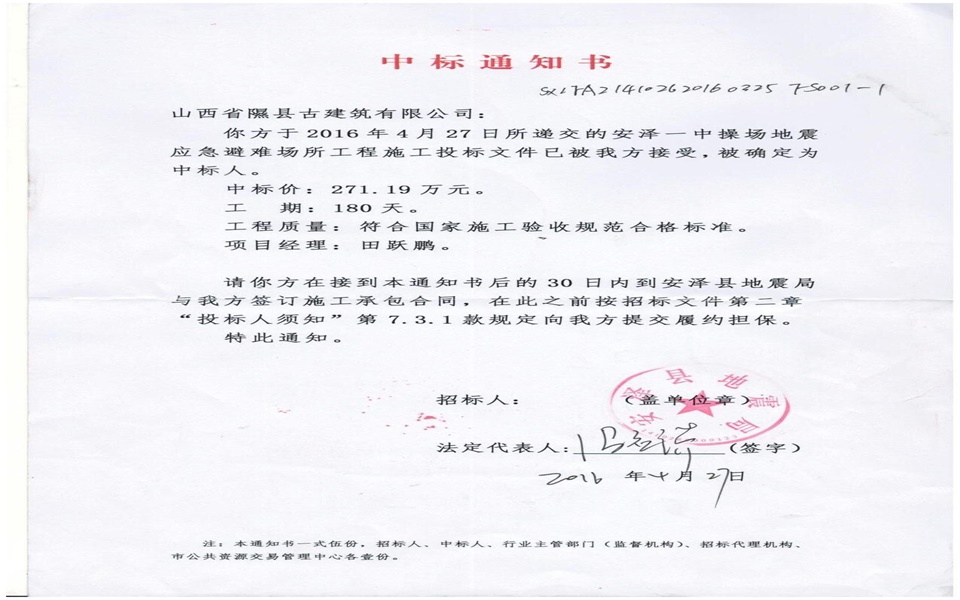 中标通知书
山西省隰县古建筑有限公司：
你方于2016年4月27日所递交的安泽一中操场地震
应急避难场所工程施工投标文件已被我方接受，被确定为
中标人。
中标价：271.19万元。
工　期：180天。
工程质量：符合国家施工验收规范合格标准。
项目经理：田跃鹏。
请你方在接到本通知书后的30日内到安泽县地震局
与我方签订施工承包合同，在此之前按招标文件第二章
“投标人须知”第7.3.1款规定向我方提交履约担保。
特此通知。
安泽县地震局
招标人：（盖单位章）
法定代表人：（签字）
2016年4月27日
注：本通知书一式伍份，招标人、中标人、行业主管部门（监督机构）、招标代理机构、
市公共资源交易管理中心各壹份。